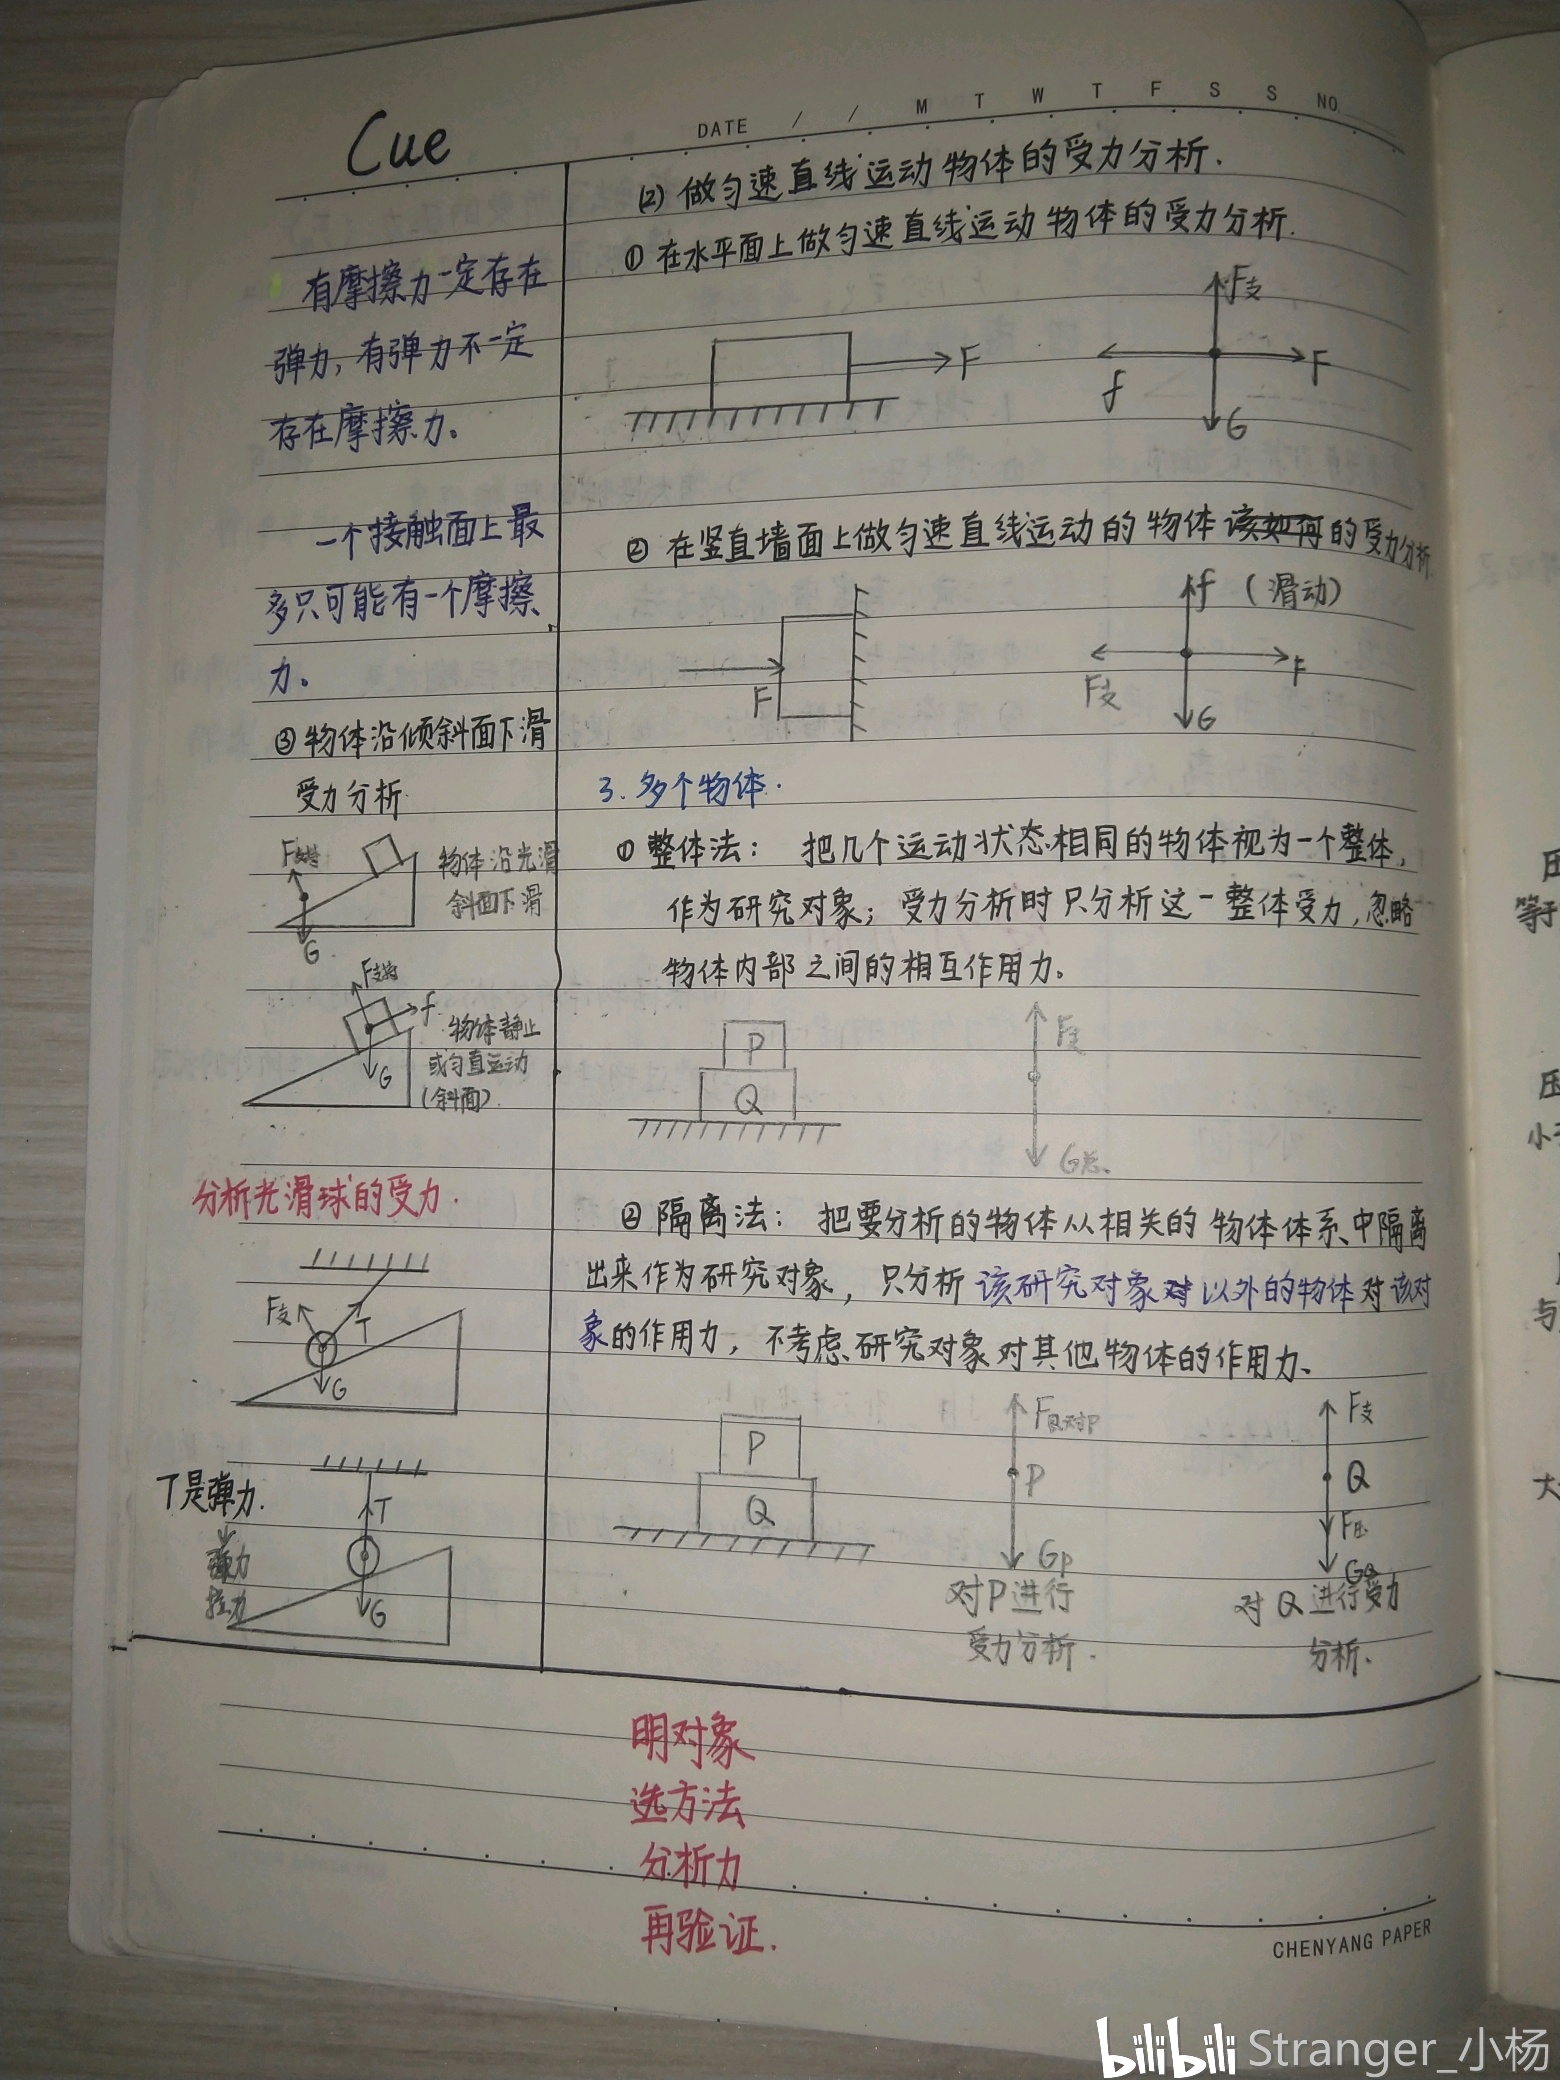 Cue
DATE / / M T W T F S S NO.
(2) 做匀速直线运动物体的受力分析.
① 在水平面上做匀速直线运动物体的受力分析.
F
F支
f
F
G
② 在竖直墙面上做匀速直线运动的物体该如何的受力分析.
F
f (滑动)
F支
F
G
3. 多个物体.
① 整体法: 把几个运动状态相同的物体视为一个整体,
作为研究对象; 受力分析时只分析这一整体受力, 忽略
物体内部之间的相互作用力。
P
Q
F支
G总
② 隔离法: 把要分析的物体从相关的物体体系中隔离
出来作为研究对象, 只分析该研究对象对以外的物体对该对
象的作用力, 不考虑研究对象对其他物体的作用力、
P
Q
FQ对P
P
Gp
对P进行
受力分析.
F支
Q
F压
GQ
对Q进行受力
分析.
有摩擦力一定存在
弹力, 有弹力不一定
存在摩擦力。
一个接触面上最
多只可能有一个摩擦
力。
③ 物体沿倾斜面下滑
受力分析
F支持
G
物体沿光滑
斜面下滑
F支持
f
G
物体静止
或匀直运动
(斜面)
分析光滑球的受力.
F支
T
G
T是弹力.
拉力
T
G
明对象
选方法
分析力
再验证.
CHENYANG PAPER
压
等于
压
小于
与
大
bilibili Stranger_小杨